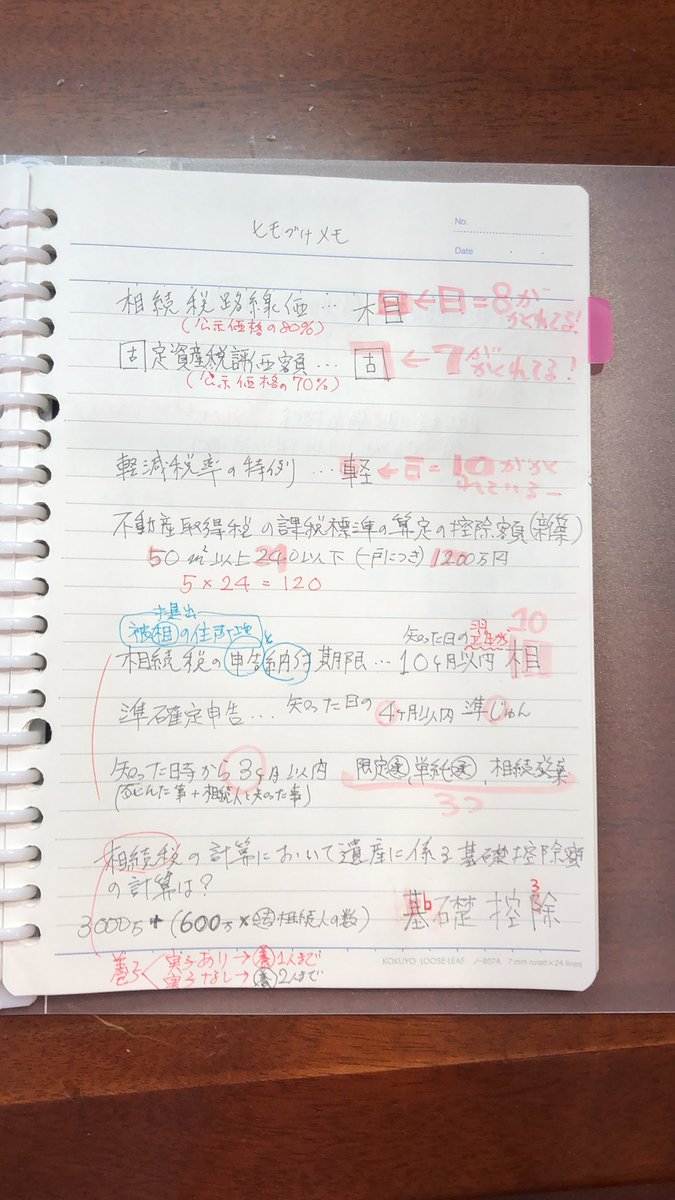 No.
ヒモづけメモ
Date
相続税路線価… 相 ←日=8が
かくれてる!
(公示価格の80%)
固定資産税評価額… 固 ←7が
かくれてる!
(公示価格の70%)
軽減税率の特例 …軽 ← =10がかく
れている
不動産取得税の課税標準の算定の控除額(新築)
50㎡以上240以下(一戸につき)1200万円
5×24=120
提出
被相の住所地と
10
知った日の翌
相続税の申告納付期限…10ヶ月以内 相
準確定申告… 知った日の4ヶ月以内 準じゅん
知った日時から3ヶ月以内 限定承,単純承,相続放棄
(死んだ事+相続人と知った事)
3つ
相続税の計算において遺産に係る基礎控除額
の計算は?
3
3000万+(600万×法相続人の数) 基b礎控除
養子 実子あり→養1人まで
実子なし→養2人まで
KOKUYO LOOSE-LEAF ノ-807A 7mm ruled×24 lines